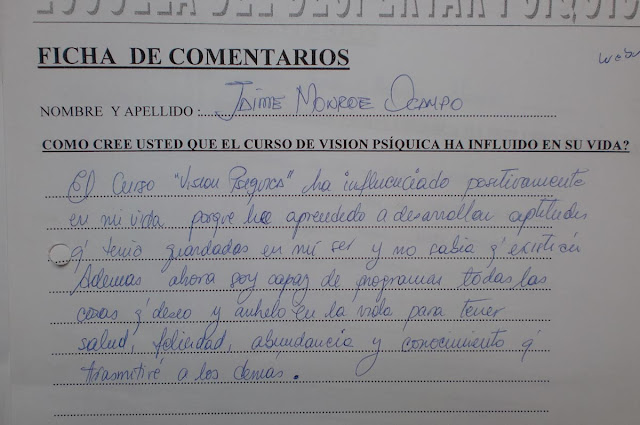 ESCUELA DEL DESPERTAR PSIQUIC
FICHA DE COMENTARIOS
NOMBRE Y APELLIDO : Jaime Monroe Ocampo
COMO CREE USTED QUE EL CURSO DE VISION PSÍQUICA HA INFLUIDO EN SU VIDA?
El Curso "Vision Psiquica" ha influenciado positivamente
en mi vida porque he aprendido a desarrollar aptitudes
q' tenia guardadas en mi ser y no sabia q' existian
Ademas ahora soy capaz de programar todas las
cosas q' deseo y anhelo en la vida para tener
salud, felicidad, abundancia y conocimiento q'
trasmitiré a los demás.